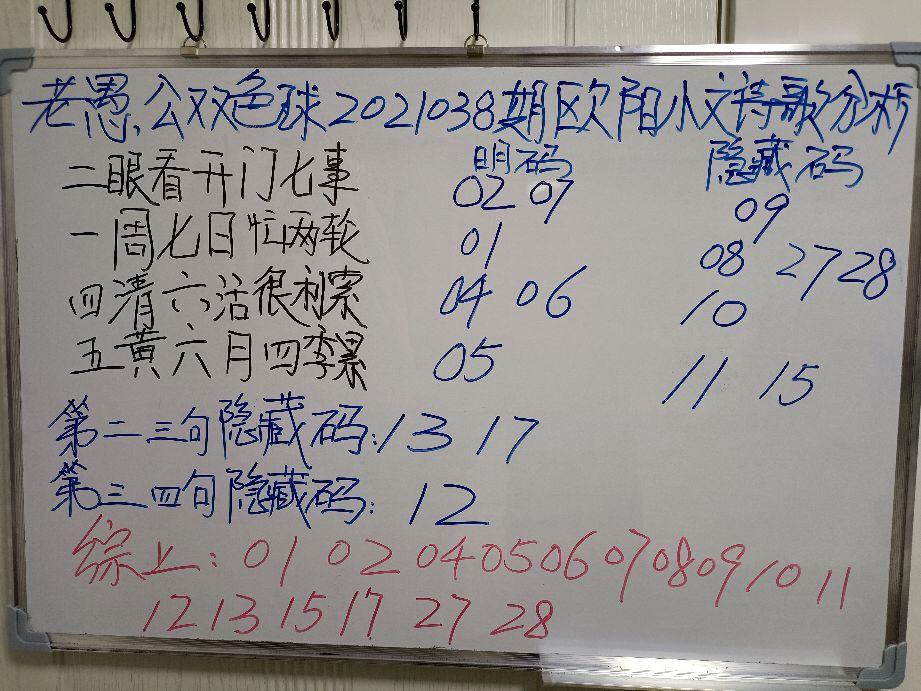 老愚公双色球2021038期欧阳小文诗歌分析
明码 隐藏码
二眼看开门七事 02 07 09
一周七日忙两轮 01 08 27 28
四清六活很利索 04 06 10
五黄六月四季累 05 11 15
第二三句隐藏码:13 17
第三四句隐藏码:12
综上:01 02 04 05 06 07 08 09 10 11
12 13 15 17 27 28